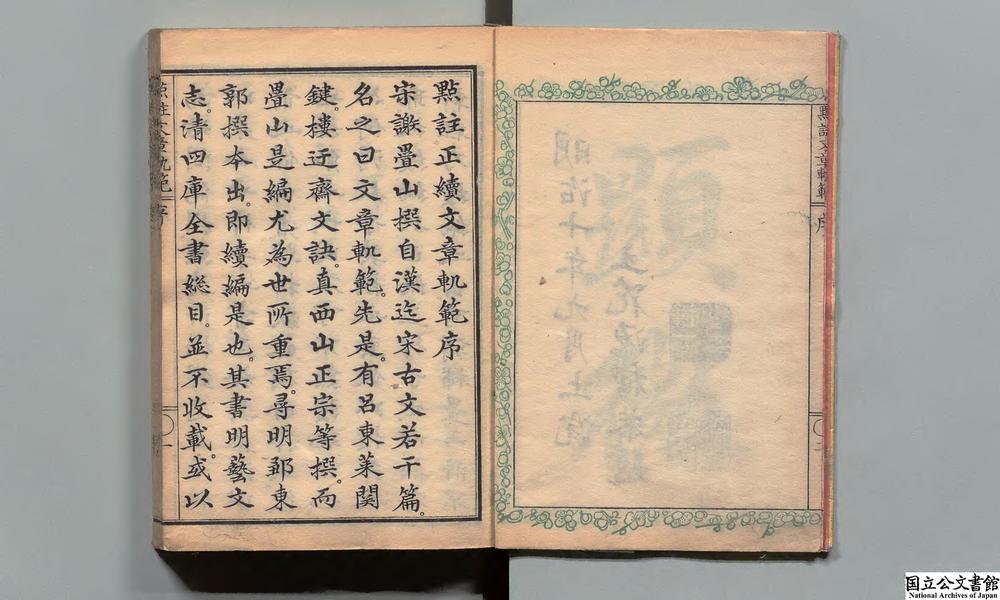 點註文章軌範
序
點註正續文章軌範序
宋謝疊山撰自漢迄宋古文若干篇。
名之曰文章軌範。先是。有呂東萊関
鍵。樓迂齋文訣。真西山正宗等撰。而
疊山是編尤為世所重焉。尋明鄒東
郭撰本出。即續編是也。其書明藝文
志。清四庫全書総目。並不收載。或以
序
一
明治十年九月上浣
国立公文書館
National Archives of Japan